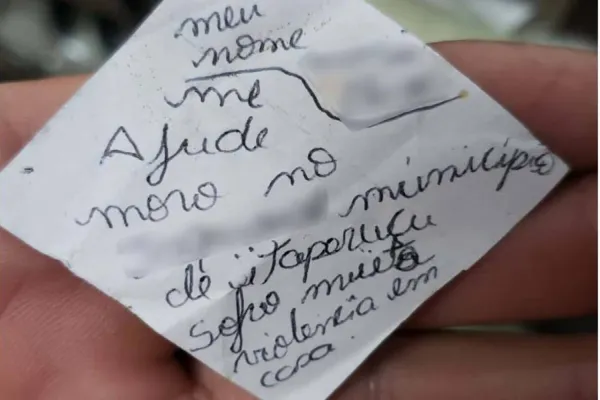 meu
nome
me
Ajude
moro no
municipio
de itaperuçu
sofro muita
violencia em
casa.